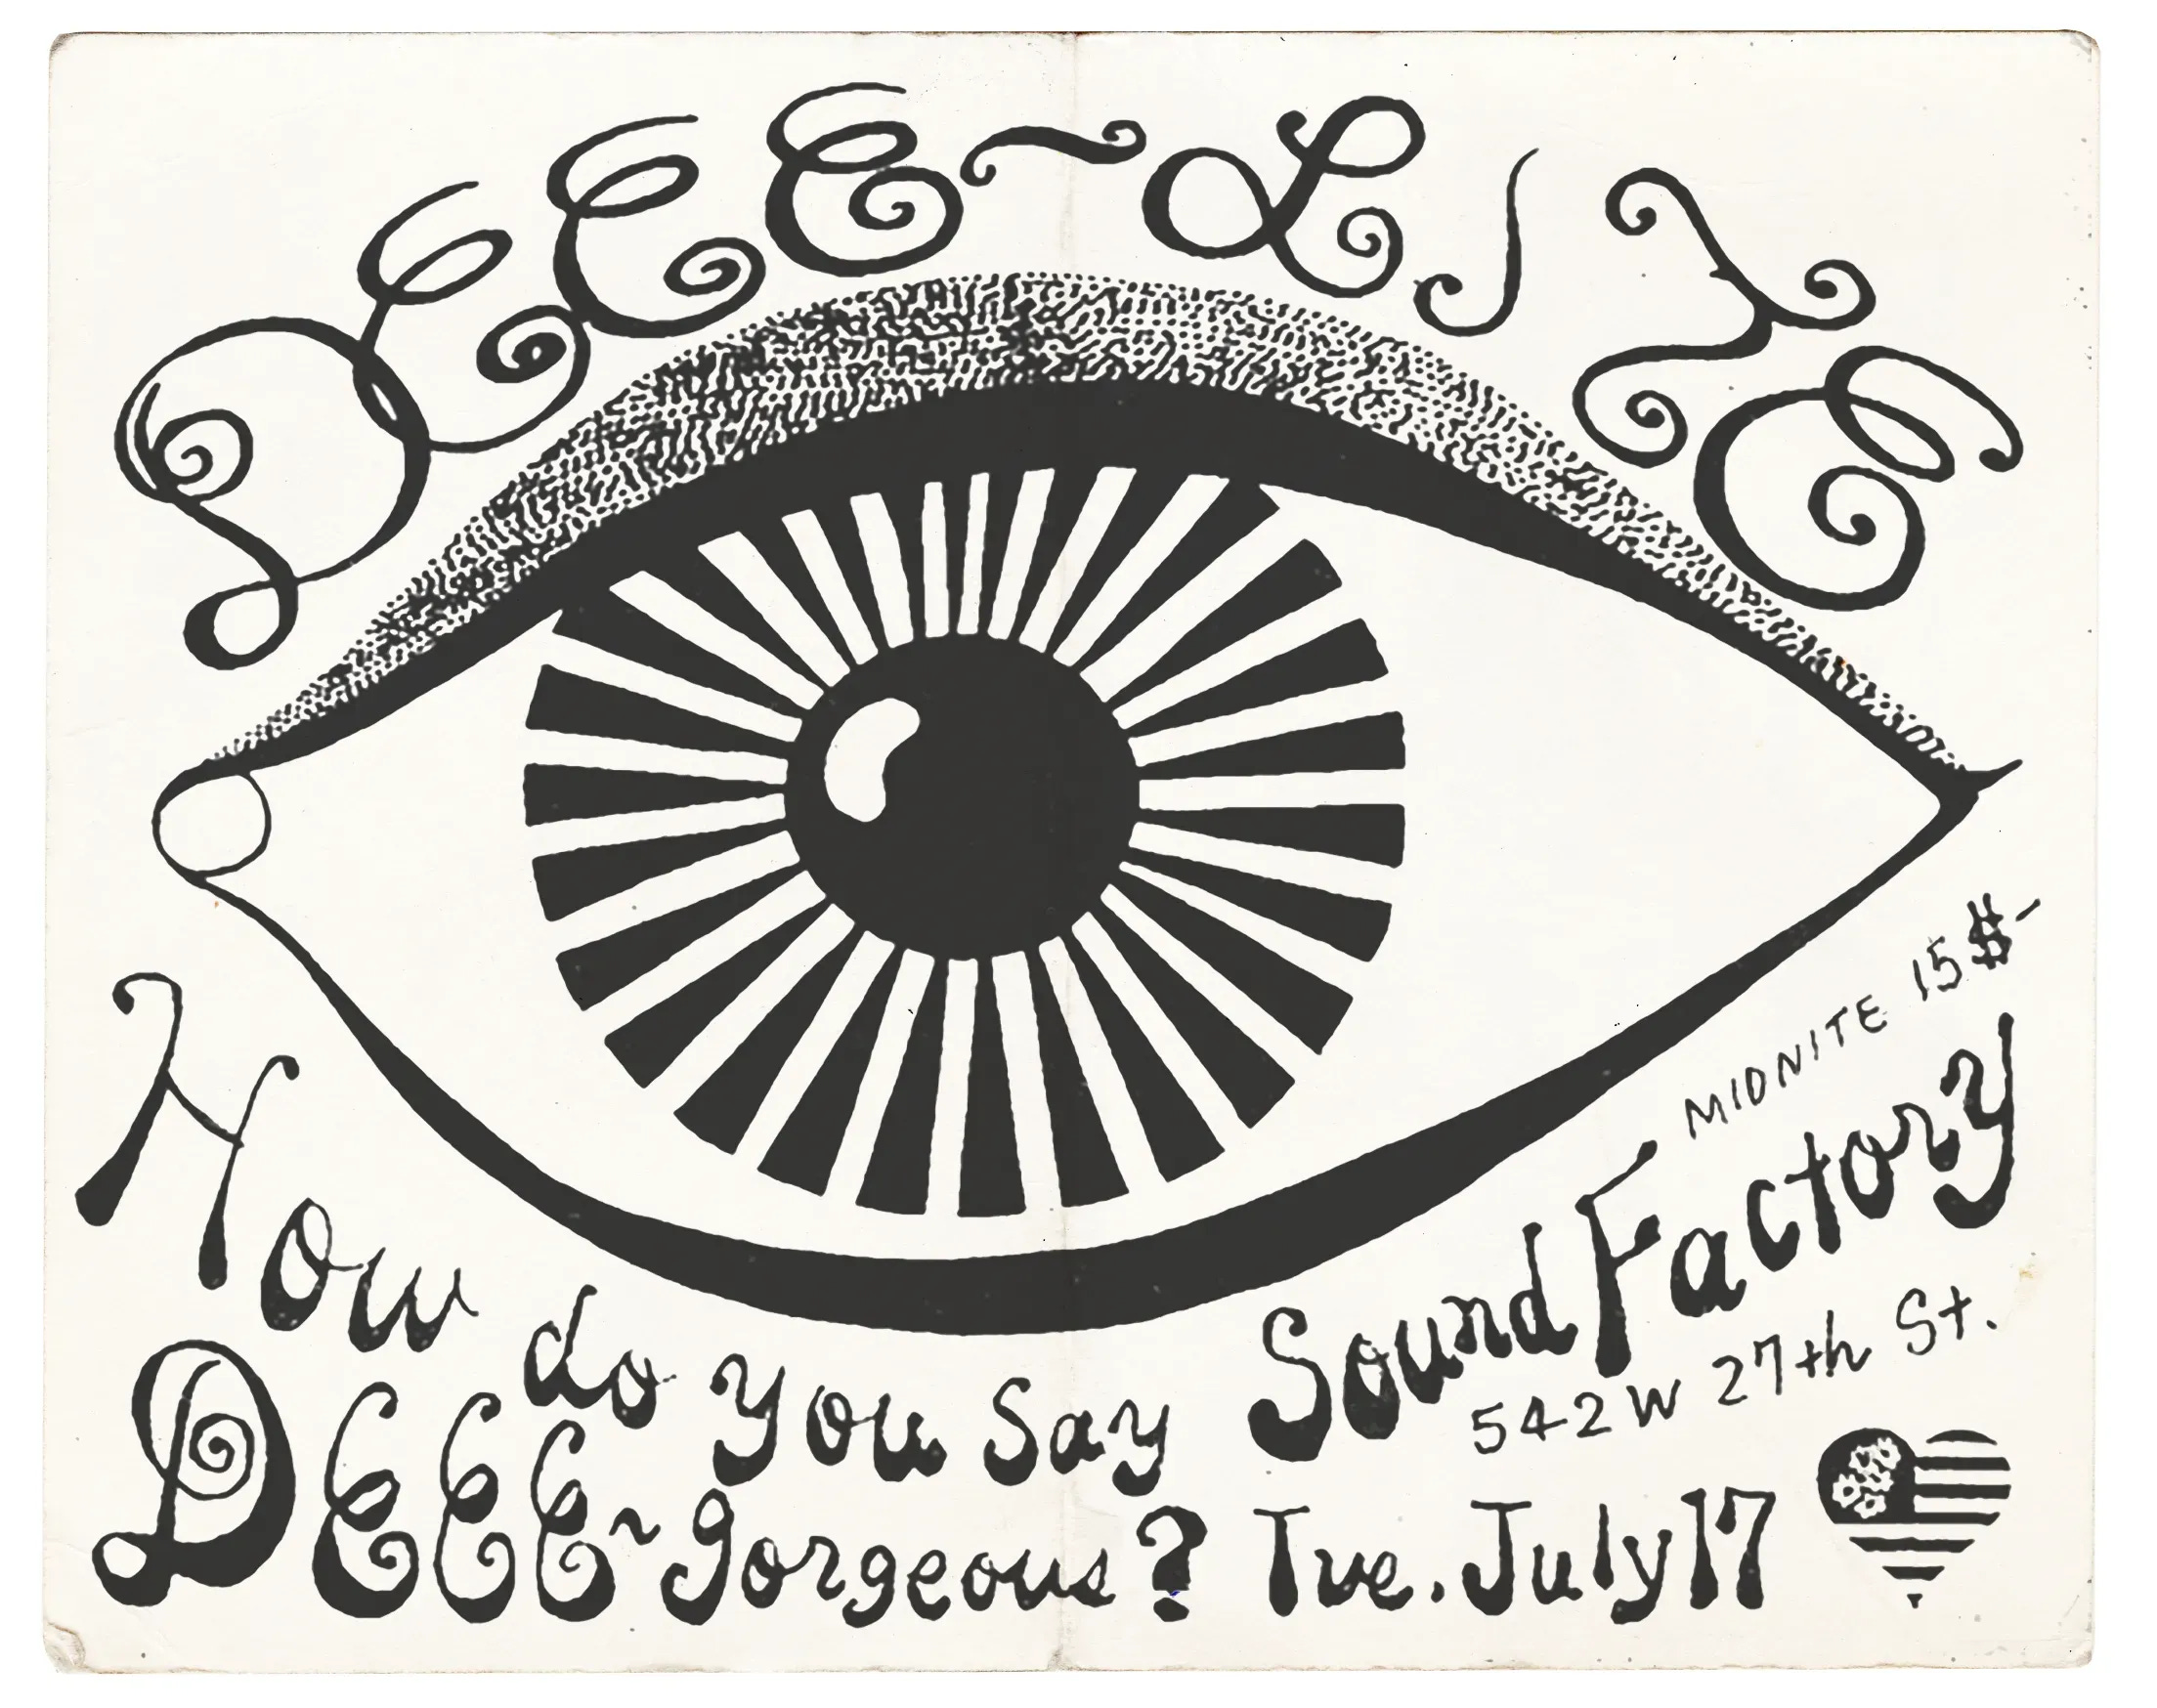 DEEE~LITE
How do you say
DEEE~gorgeous?
MIDNITE 15$-
Sound Factory
542 W 27th St.
Tue. July 17